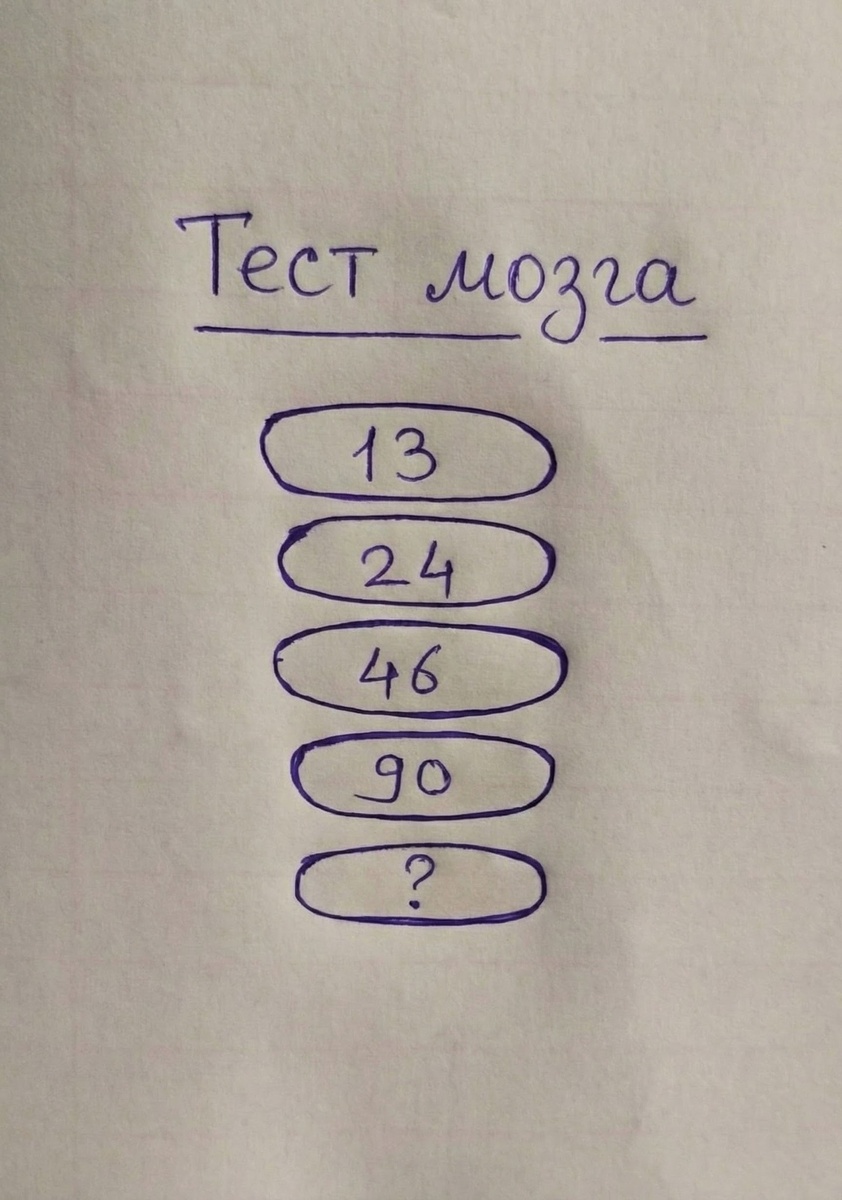 Тест мозга
13
24
46
90
?